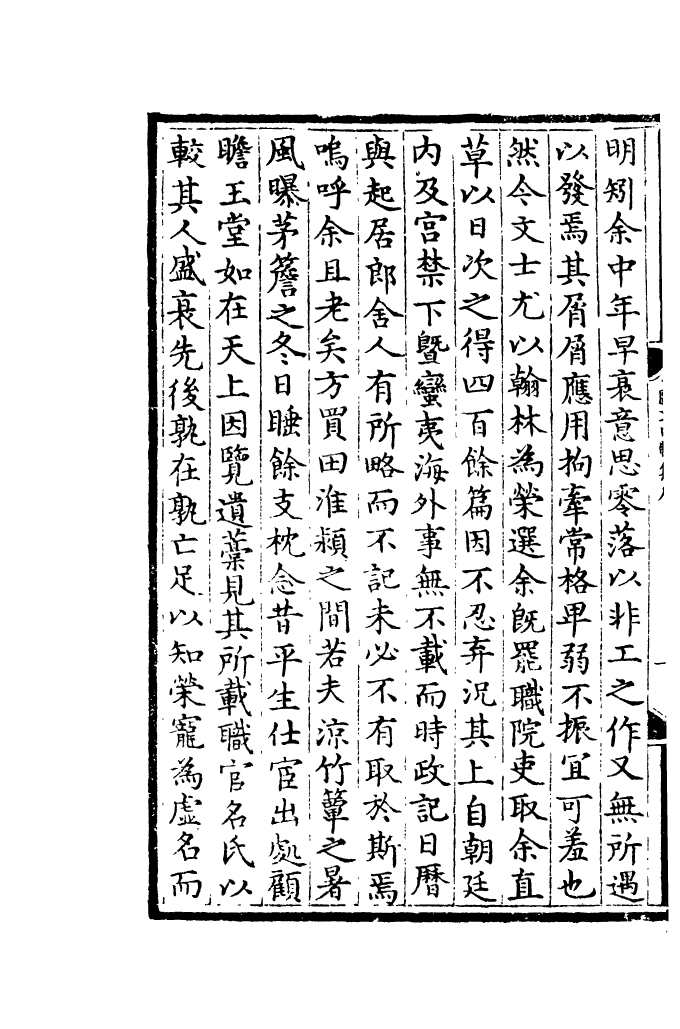 明矧余中年早衰意思零落以非工之作又無所遇
以發焉其屑屑應用拘牽常格卑弱不振宜可羞也
然今文士尤以翰林為榮選余既罷職院吏取余直
草以日次之得四百餘篇因不忍弃況其上自朝廷
内及宫禁下曁蠻夷海外事無不載而時政記日曆
與起居郎舍人有所略而不記未必不有取於斯焉
嗚呼余且老矣方買田淮潁之間若夫涼竹簟之暑
風曝茅簷之冬日睡餘支枕念昔平生仕宦出處顧
瞻王堂如在天上因覽遺藁見其所載職官名氏以
較其人盛衰先後孰在孰亡足以知榮寵為虛名而